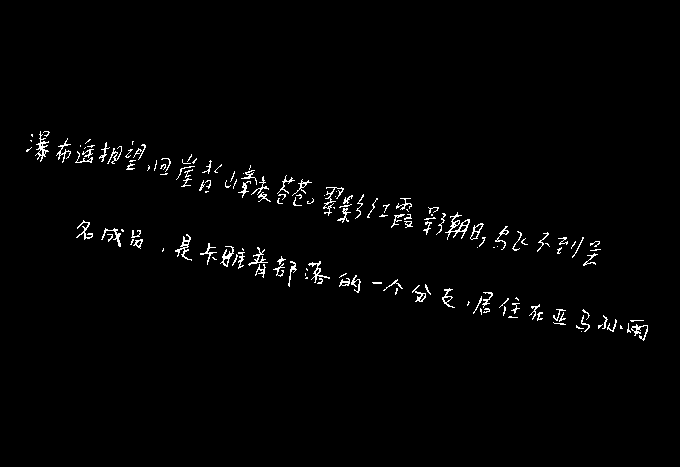 瀑布遥相望,回崖沓嶂凌苍苍。翠影红霞影朝日,鸟飞不到吴
名成员,是卡雅普部落的一个分支,居住在亚马孙雨